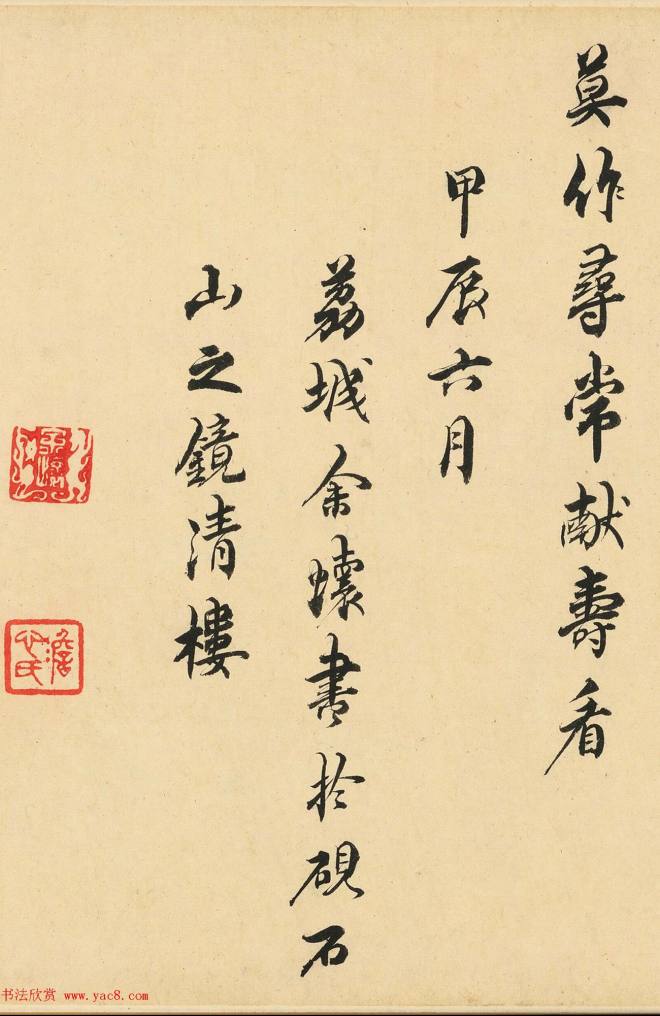 莫作尋常献壽看
甲辰六月
荔城余懷書於硯石
山之鏡清樓
书法欣赏 www.yac8.com